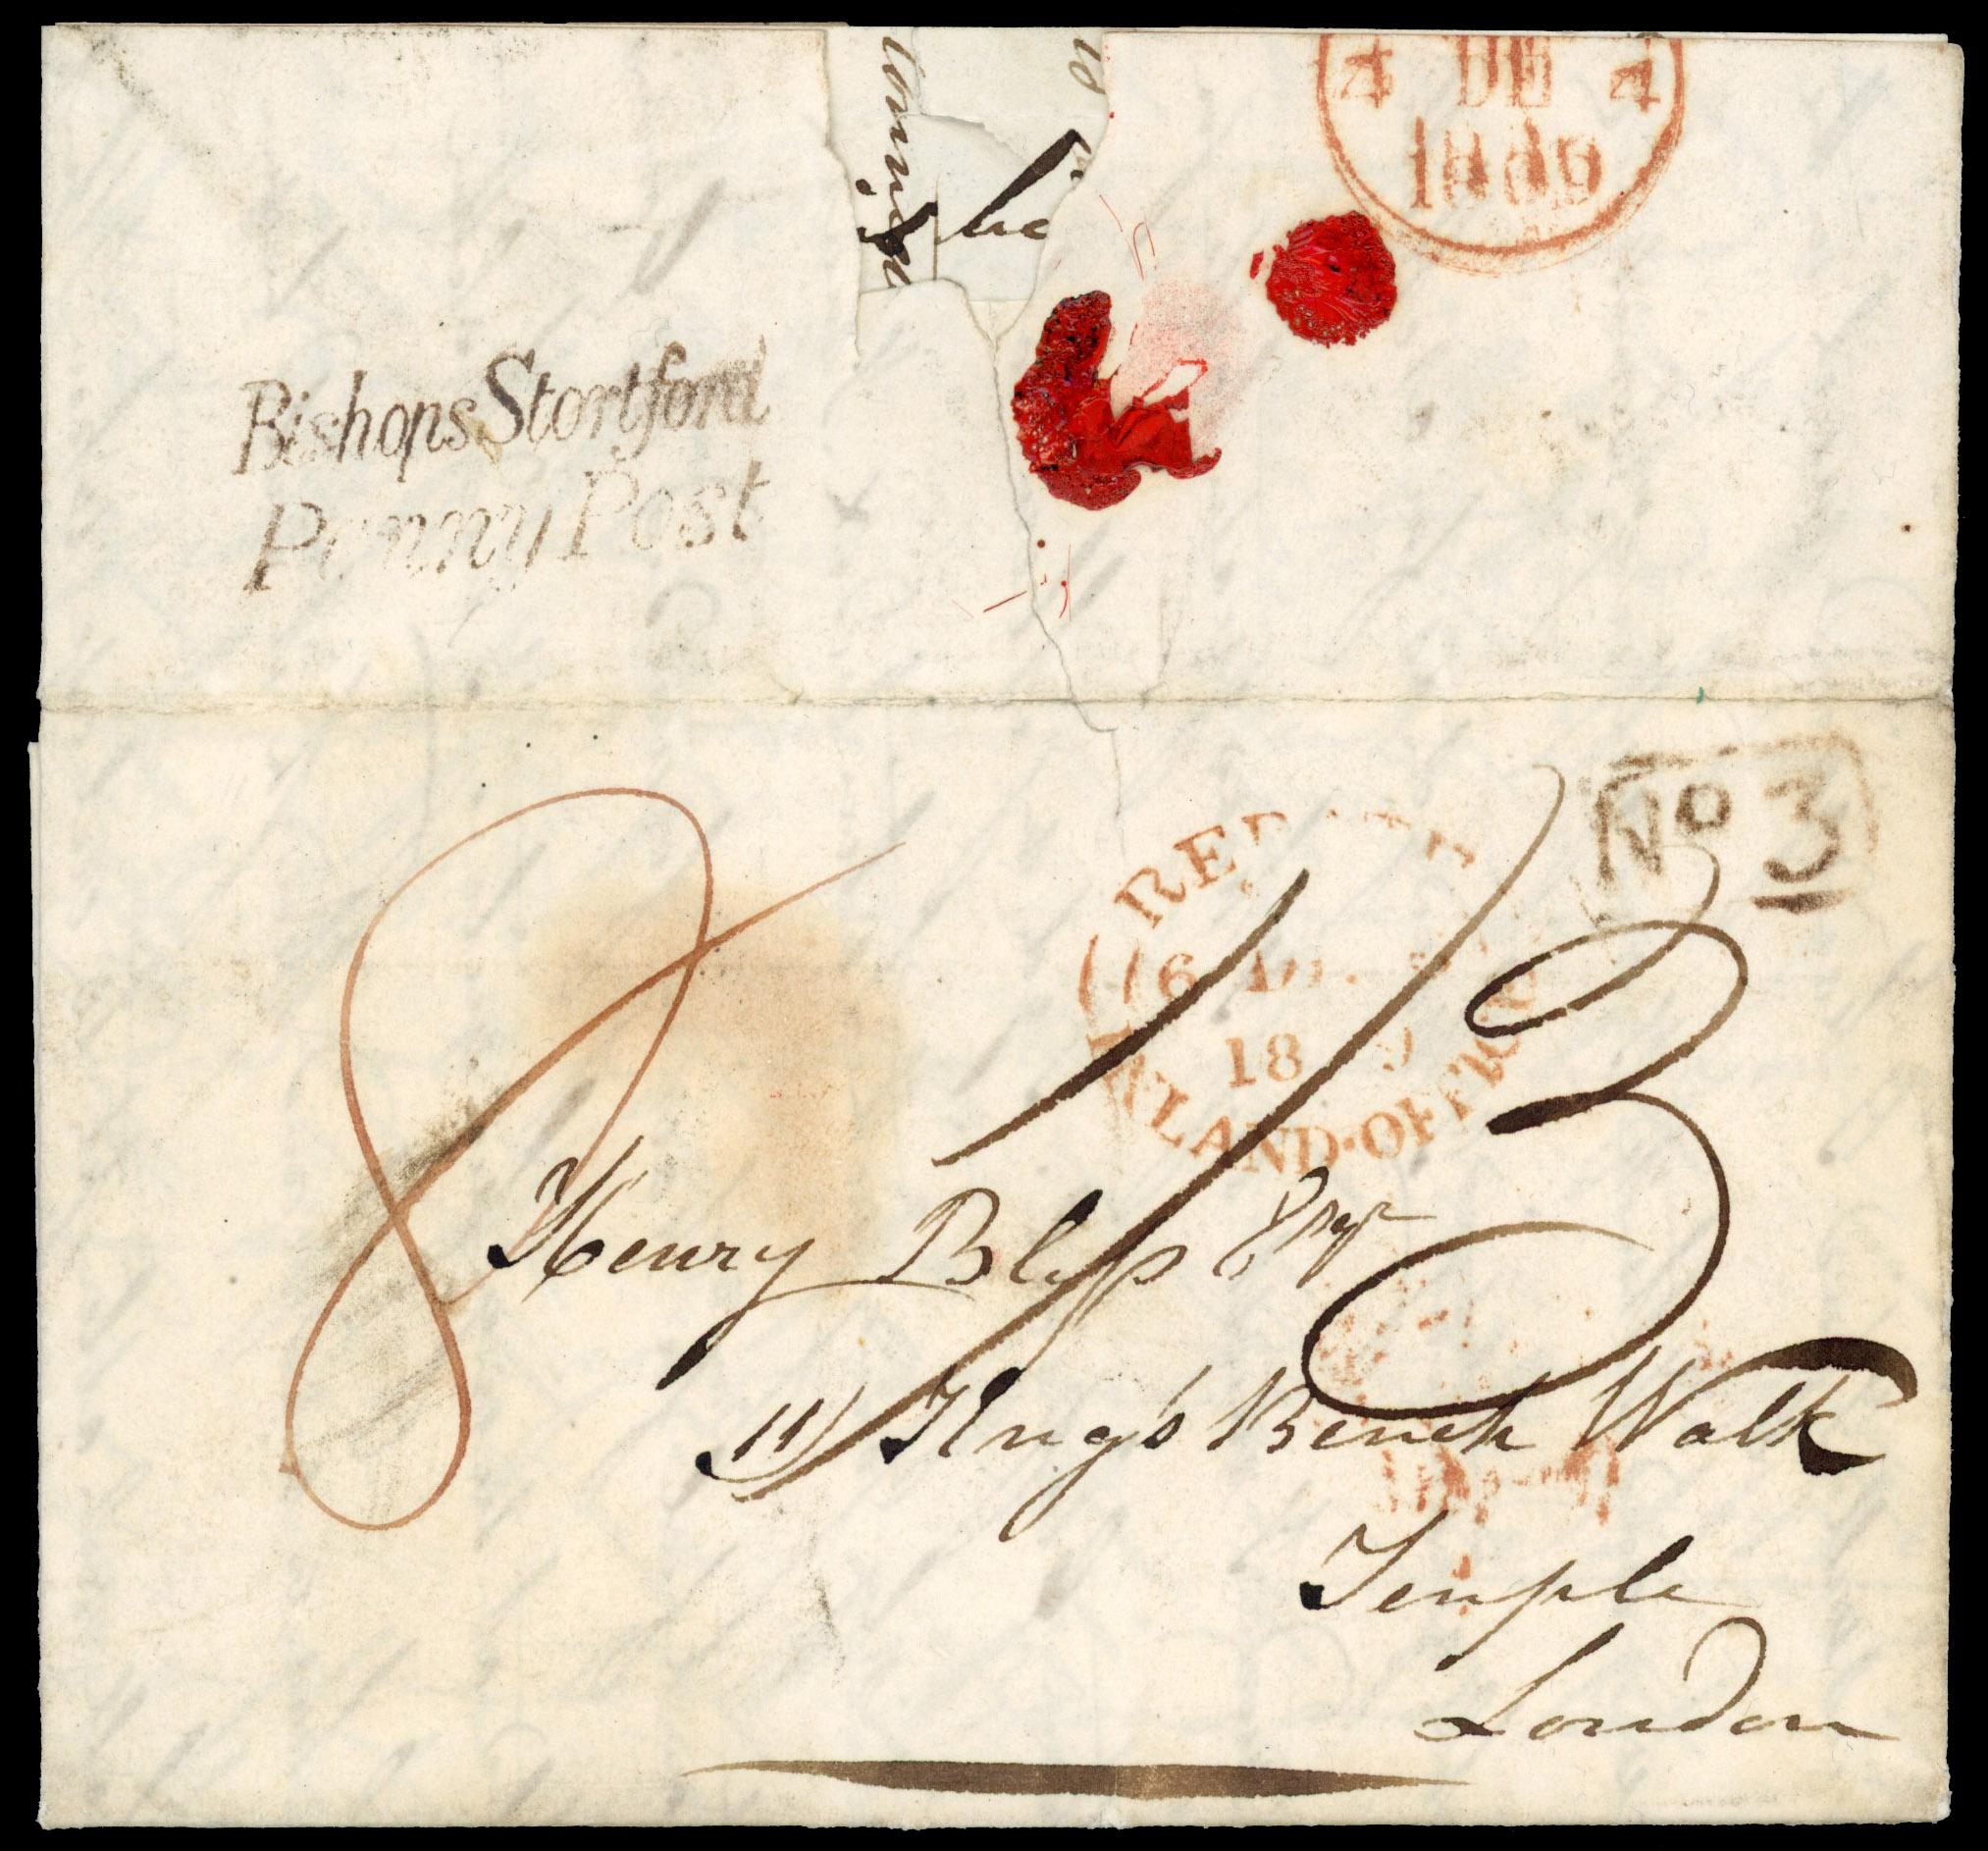 4 DE 4
he
Bishops Stortford
Penny Post
No 3
6
18 9
LAND·OFFICE
8
1/3
Henry Bliss Esqr
11 King's Bench Walk
Temple
London